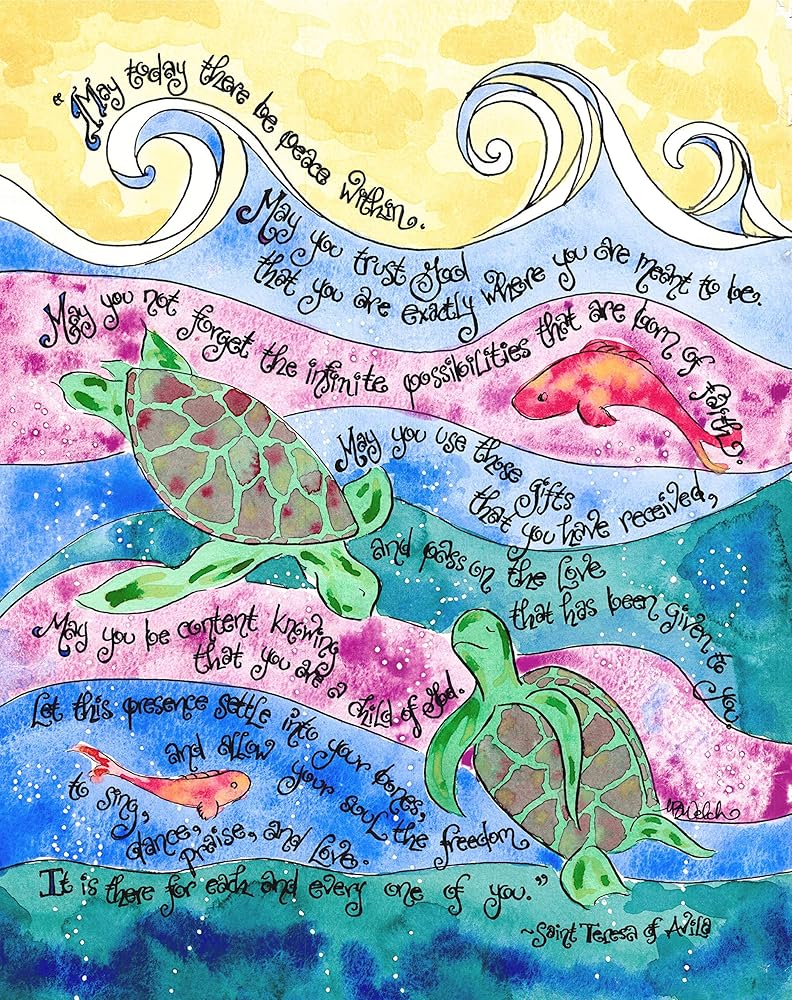 "May today there be peace within.
May you trust God
that you are exactly where you are meant to be.
May you not forget the infinite possibilities that are born of faith.
May you use those gifts
that you have received,
and pass on the love
that has been given to you.
May you be content knowing
that you are a child of God.
Let this presence settle into your bones,
and allow your soul the freedom
to sing,
dance,
praise, and love.
It is there for each and every one of you."
~Saint Teresa of Avila